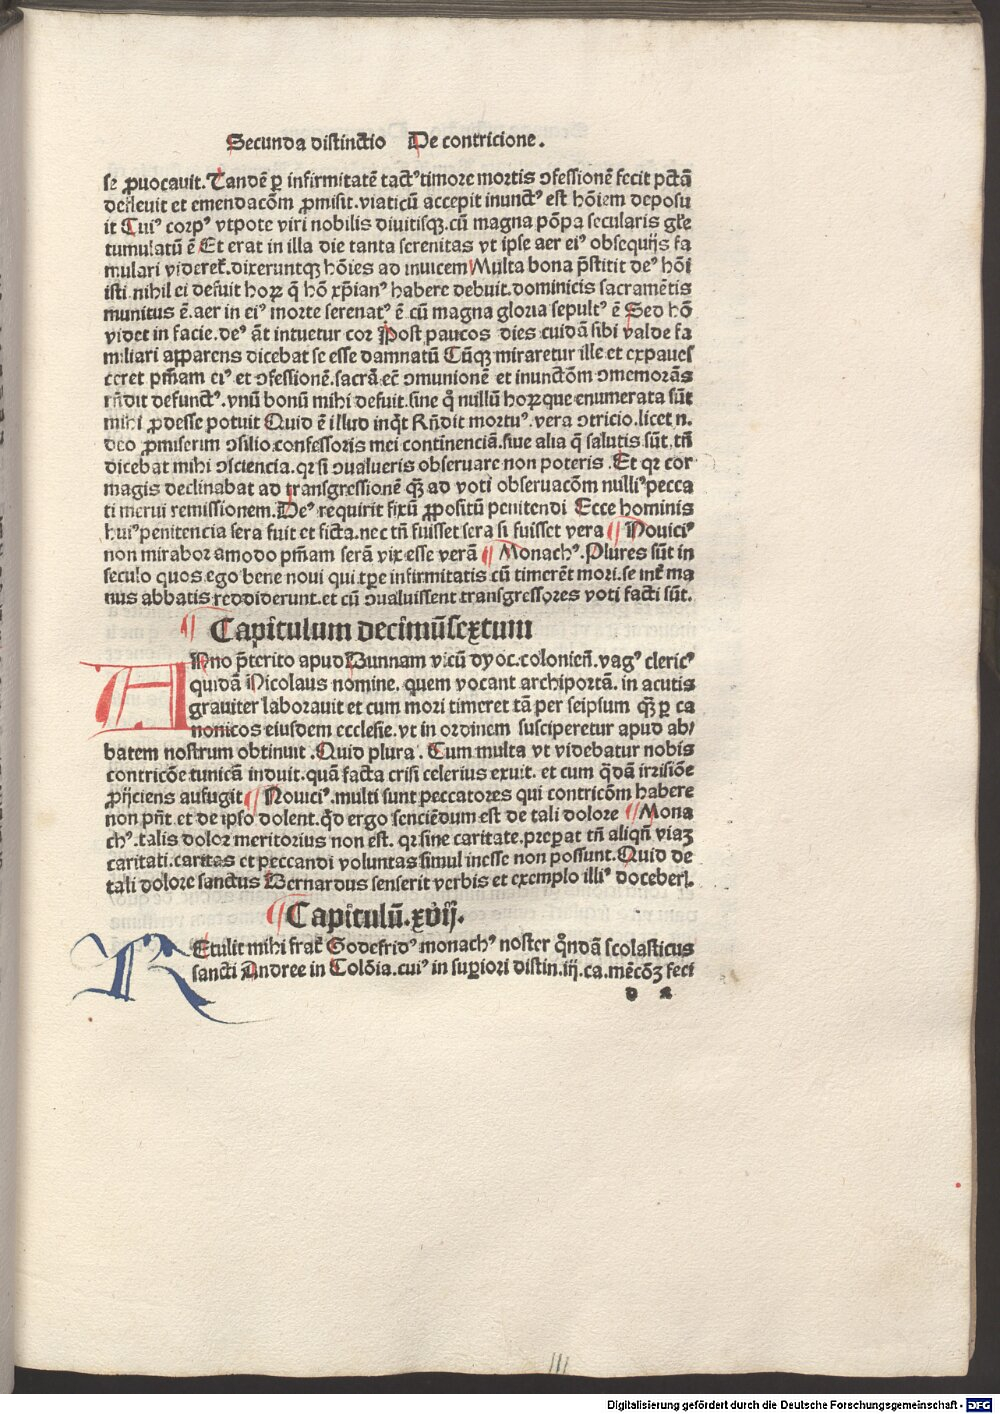 Secunda distinctio De contricione.
se ꝓuocauit. Tandē ꝑ infirmitatē tactꝰ timore mortis ꝯfessionē fecit pctā
defleuit et emendacōm ꝓmisit. viaticū accepit inunctꝰ est hōiem deposu
it Cuiꝰ corpꝰ vtpote viri nobilis diuitisqꝫ. cū magna pōpa secularis gl̄e
tumulatū ē Et erat in illa die tanta serenitas vt ipse aer eiꝰ obsequijs fa
mulari videret̄. dixeruntqꝫ hōies ad inuicem Multa bona p̄stitit deꝰ hōi
isti. nihil ei defuit hoꝝ q̄ hō xp̄ianꝰ habere debuit. dominicis sacramētis
munitus ē. aer in eiꝰ morte serenatꝰ ē. cū magna gloria sepultꝰ ē Sed hō
videt in facie. deꝰ āt intuetur cor Post paucos dies cuidā sibi valde fa
miliari apparens dicebat se esse damnatū Cūqꝫ miraretur ille et expauef
ceret pn̄iam eiꝰ et ꝯfessionē. sacrā ec̄ ꝯmunionē et inunctōm ꝯmemorās
rn̄dit defunctꝰ. vnū bonū mihi defuit. sine q̄ nullū hoꝝ que enumerata sūt
mihi ꝓdesse potuit Quid ē illud inq̄t Rn̄dit mortuꝰ. vera ꝯtricio. licet n.
deo ꝓmiserim ꝯsilio confessoris mei continenciā. siue alia q̄ salutis sūt. tn̄
dicebat mihi ꝯsciencia. qꝛ si ꝯualueris obseruare non poteris. Et qꝛ cor
magis declinabat ad transgressionē qꝫ̄ ad voti obseruacōm nulliꝰ pecca
ti merui remissionem. Deꝰ requirit fixū ꝓpositū penitendi Ecce hominis
huiꝰ penitencia sera fuit et ficta. nec tn̄ fuisset sera si fuisset vera ¶ Nouiciꝰ
non mirabor amodo pn̄iam serā vix esse verā ¶ Monachꝰ. Plures sūt in
seculo quos ego bene noui qui tꝑe infirmitatis cū timerēt mori. se int̄ ma
nus abbatis reddiderunt. et cū ꝯualuissent transgressores voti facti sūt.
¶ Capitulum decimūsextum
ANno p̄terito apud Bunnam vicū dyoc. colonien̄. vagꝰ clericꝰ
quidā Nicolaus nomine. quem vocant archiportā. in acutis
grauiter laborauit et cum mori timeret tā per seipsum qꝫ̄ ꝑ ca
nonicos eiusdem ecclesie. vt in ordinem susciperetur apud ab/
batem nostrum obtinuit. Quid plura. Cum multa vt videbatur nobis
contricōe tunicā induit. quā facta crisi celerius exuit. et cum q̄dā irrisiōe
ꝓijciens aufugit ¶ Nouiciꝰ. multi sunt peccatores qui contricōm habere
non pn̄t. et de ipso dolent. qd̄ ergo senciēdum est de tali dolore ¶ Mona
chꝰ. talis dolor meritorius non est. qꝛ sine caritate. preꝑat tn̄ aliqn̄ viaꝫ
caritati. caritas et peccandi voluntas simul inesse non possunt. Quid de
tali dolore sanctus Bernardus senserit verbis et exemplo illiꝰ doceberl.
¶ Capitulū. xvij.
REtulit mihi frat̄ Godefridꝰ monachꝰ noster q̄ndā scolasticus
sancti Andree in Colōia. cuiꝰ in suꝑiori distin. iij. ca. mēcōꝫ feci
d 2